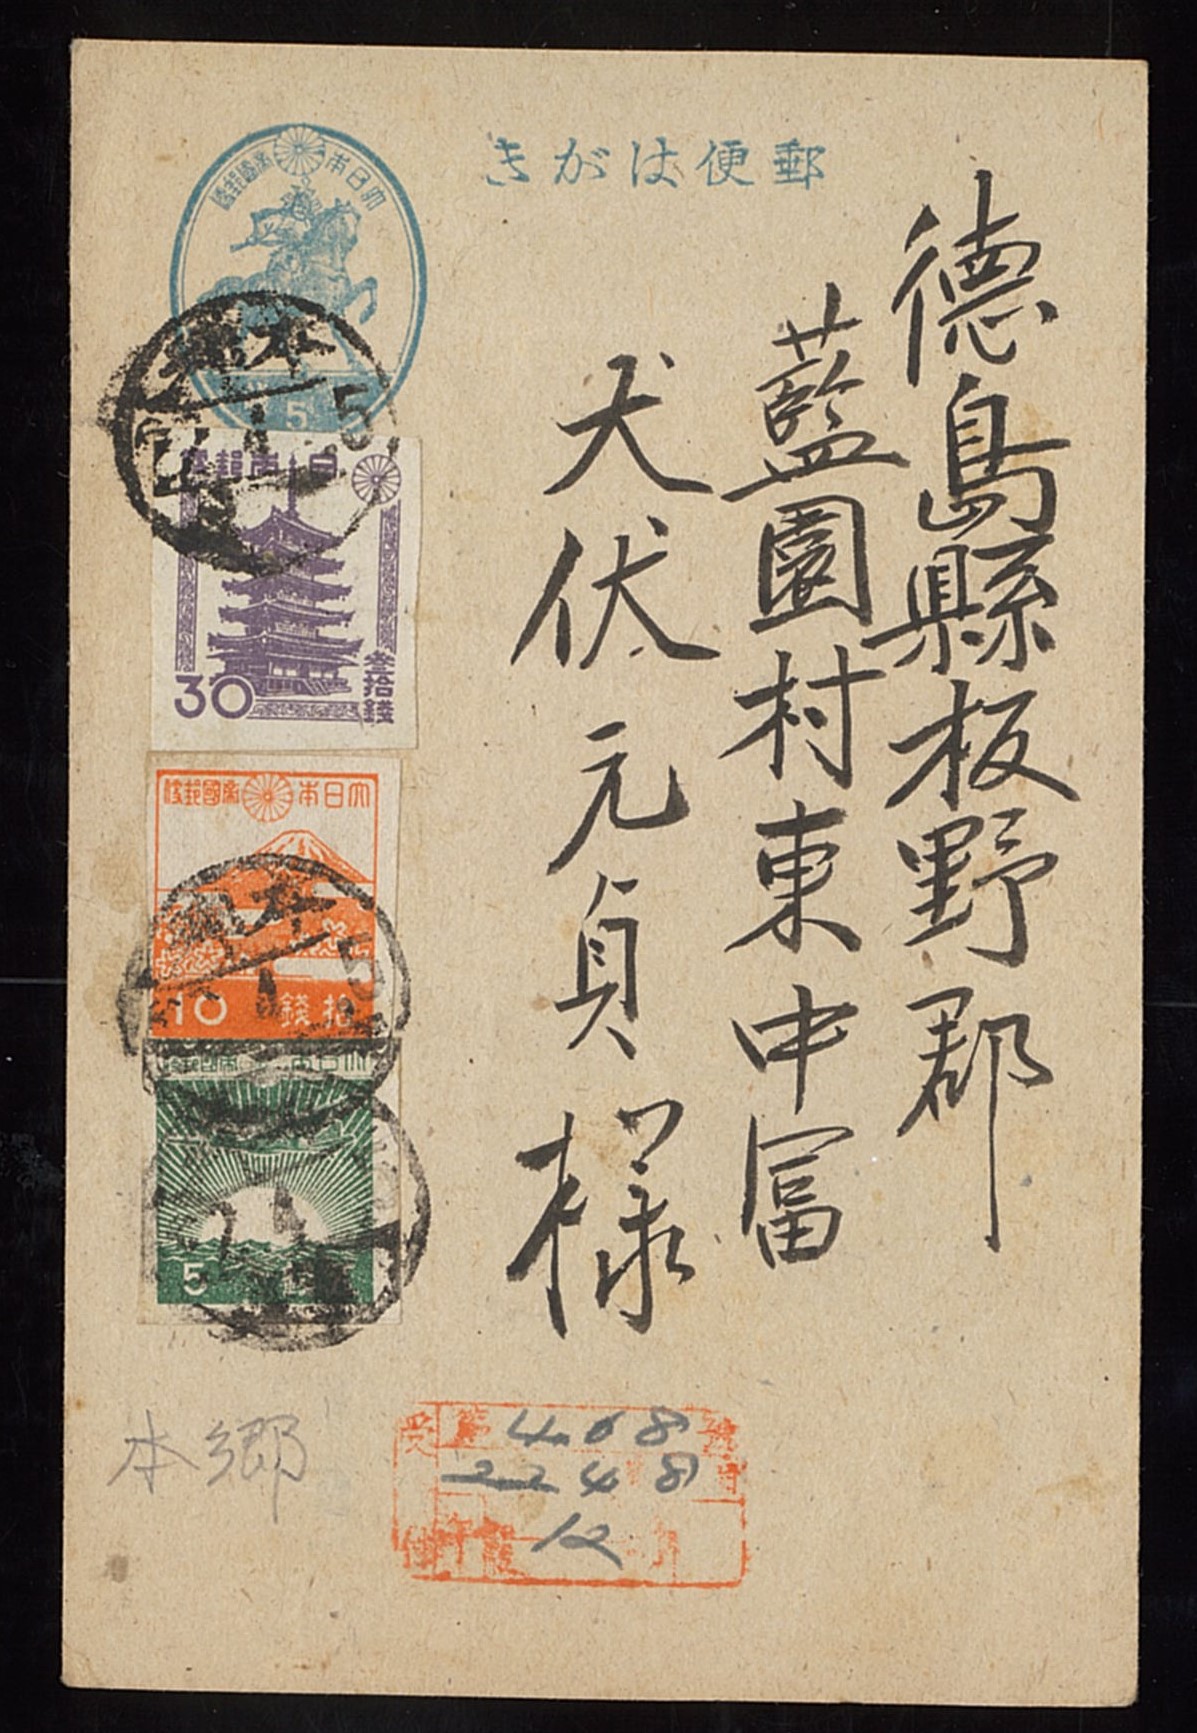 郵便はがき
大日本帝國郵便
5
德島縣板野郡
藍園村東中富
犬伏元貞様
日本郵便
30
叄拾錢
大日本帝國郵便
10
拾錢
大日本帝國郵便
5
本郷
受
第 4.68 號
22 4 8
12